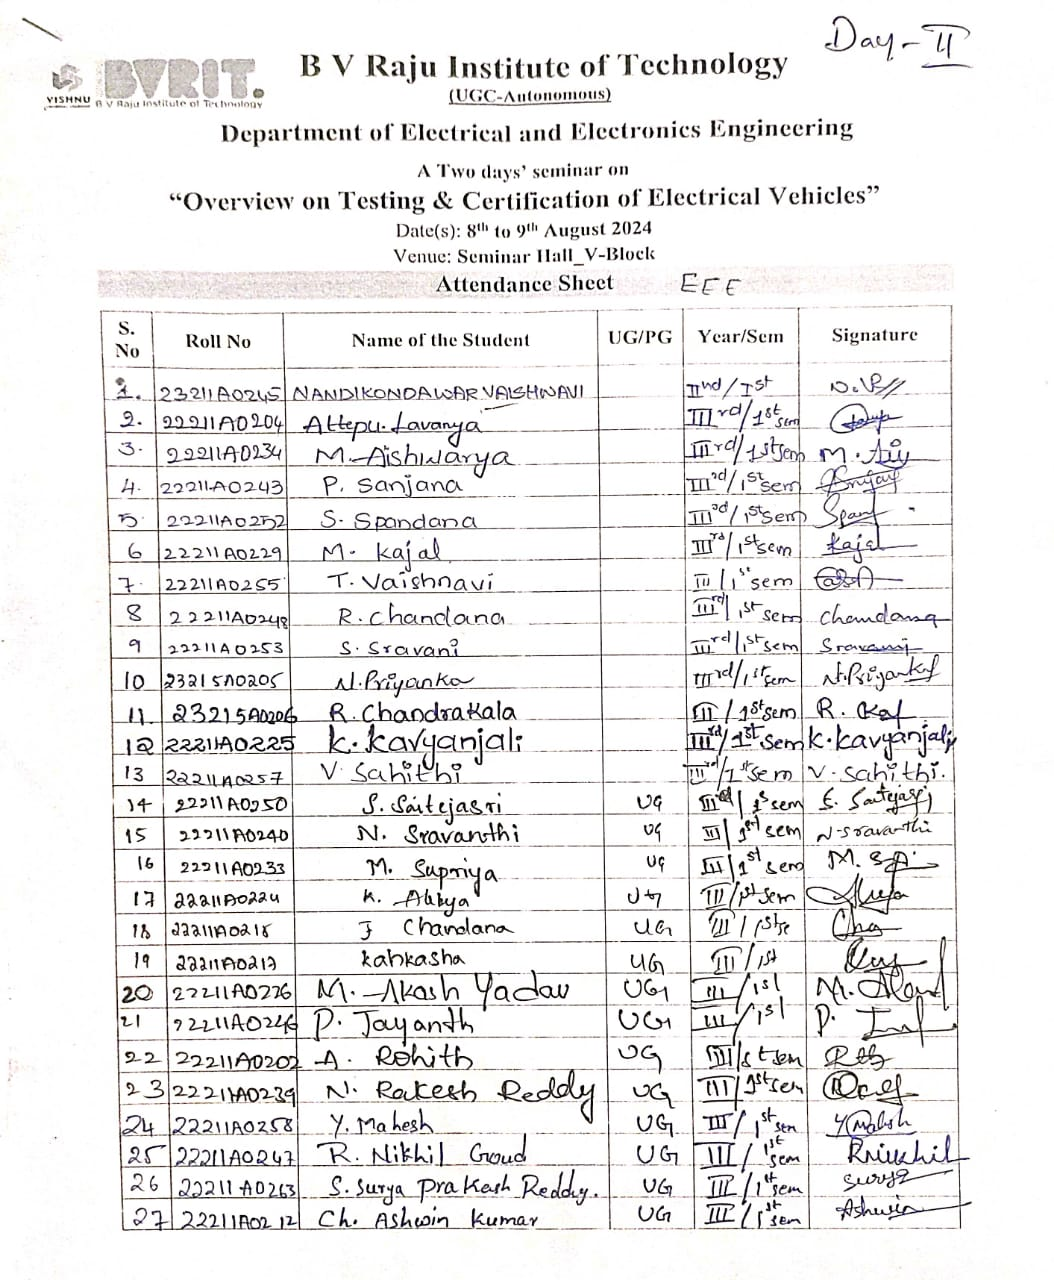 Day - II
VISHNU
BVRIT.
B V Raju Institute of Technology
B V Raju Institute of Technology
(UGC-Autonomous)
Department of Electrical and Electronics Engineering
A Two days' seminar on
"Overview on Testing & Certification of Electrical Vehicles"
Date(s): 8th to 9th August 2024
Venue: Seminar Hall_V-Block
Attendance Sheet EEE
S. No Roll No Name of the Student UG/PG Year/Sem Signature
1. 23211A0245 NANDIKONDAWAR VAISHNAVI IInd/Ist
2. 22211A0204 Attepu. Lavanya IIIrd/1st sem
3. 22211A0234 M. Aishwarya IIIrd/1st sem
4. 22211A0243 P. Sanjana IIIrd/1st sem
5. 22211A0252 S. Spandana IIIrd/1st sem
6 22211A0229 M. Kajal IIIrd/1st sem Kajal
7. 22211A0255 T. Vaishnavi III/1st sem
8 22211A0248 R. Chandana IIIrd/1st sem Chandana
9 22211A0253 S. Sravani IIIrd/1st sem Sravani
10 23215A0205 N. Priyanka IIIrd/1st sem N. Priyanka
11. 23215A0206 R. Chandrakala III/1st sem
12 22211A0225 K. Kavyanjali IIIrd/1st sem K. Kavyanjali
13 22211A0257 V. Sahithi IIIrd/1st sem V. Sahithi.
14 22211A0250 S. Saitejasri UG IIIrd/1st sem S. Saitejasri
15 22211A0240 N. Sravanthi UG III/1st sem N. Sravanthi
16 22211A0233 M. Supriya UG III/1st sem
17 22211A0224 K. UG III/1st sem
18 22211A0218 J Chandana UG III/1st se
19 22211A0217 Kahkasha UG III/1st
20 22211A0226 M. Akash Yadav UG III/1st
21 22211A0246 P. Jayanth UG III/1st
22 22211A0202 A. Rohith UG III/1st sem
23 22211A0239 N. Rakesh Reddy UG III/1st sem
24 22211A0258 Y. Mahesh UG III/1st sem Y Mahesh
25 22211A0247 R. Nikhil Goud UG III/1st sem
26 22211A0263 S. Surya Prakash Reddy. UG III/1st sem Surya
27 22211A0212 Ch. Ashwin Kumar UG III/1st sem Ashwin